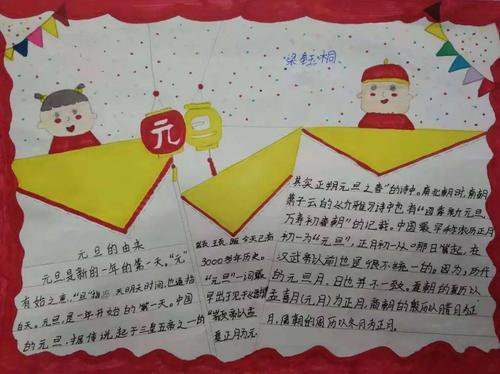 梁钰桐
元
旦
元旦的由来
元旦是新的一年的第一天。"元"
有始之意,"旦"指 天明天时间,也通指
白天。元旦,是一年开始的第一天。中国
的元旦,据传说起于三皇五帝之一的
今已有
3000多年历史。
"元旦"一词最
早出于
夏正月为元,
其实正朔元旦之春"的诗中。南北朝时,南朝
萧子云的《介雅》诗中也有"四春新元旦,
万寿初春朝"的记载。中国最早称农历正月
初一为"元旦",正月初一从 那日算起,在
汉武帝以前也是很不统一的。因为,历代
的元旦月、日也并不一致。夏朝的夏历以
孟喜月(元月)为正月,商朝的殷历以腊月为正
月,周朝的周历以冬月为正月。